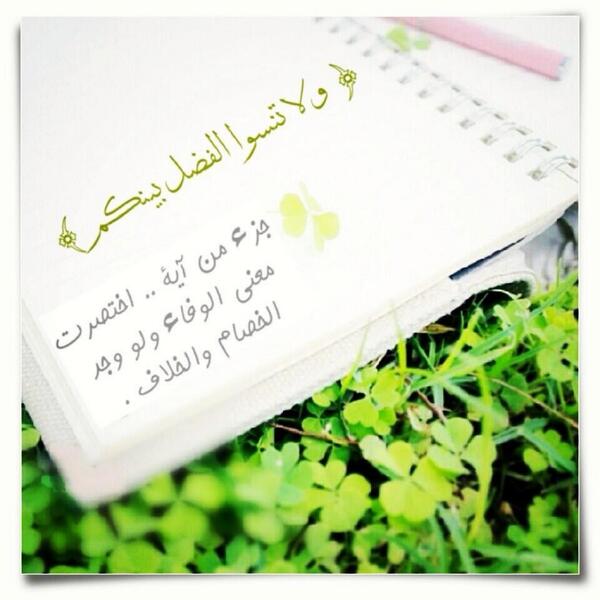 ﴿ ولا تنسوا الفضل بينكم ﴾
جزء من آية .. اختصرت
معنى الوفاء ولو وجد
الخصام والخلاف .